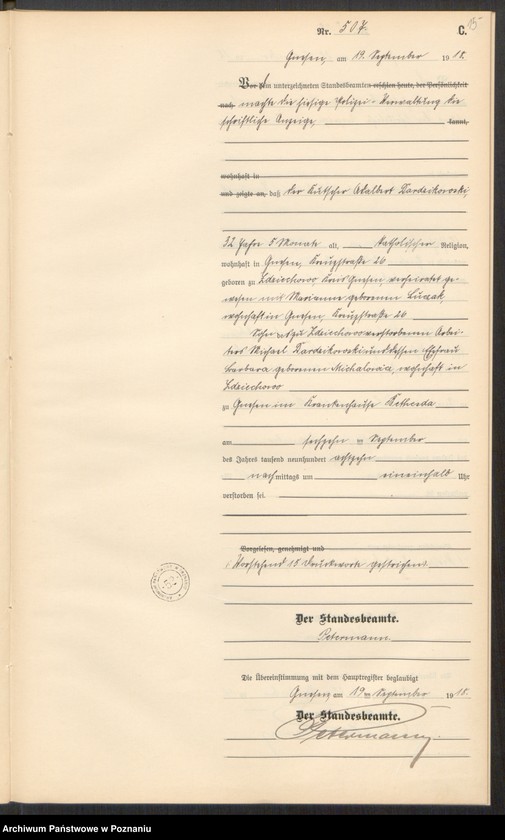 Nr. 507.
C.
15
Gnesen, am 19. September 1918.
Vor dem unterzeichneten Standesbeamten erschien heute, der Persönlichkeit
nach machte die hiesige Polizei-Verwaltung die
schriftliche Anzeige, kannt,
wohnhaft in
und zeigte an, daß der Kutscher Adalbert Dardzikowski,
32 Jahre 5 Monate alt, katholischer Religion,
wohnhaft in Gnesen, Kreuzstraße 26
geboren zu Zdziechowo Kreis Gnesen, verheiratet ge-
wesen mit Marianne geborenen Luzak
wohnhaft in Gnesen, Kreuzstraße 26
Sohn des zu Zdziechowo verstorbenen Arbei-
ters Michael Dardzikowski und dessen Ehefrau
Barbara geborenen Michalowicz, wohnhaft in
Zdziechowo
zu Gnesen im Krankenhause Bethesda
am sechzehn ten September
des Jahres tausend neunhundert achtzehn
nachmittags um eineinhalb Uhr
verstorben sei.
Vorgelesen, genehmigt und
Vorstehend 15 Druckworte gestrichen.
Der Standesbeamte.
Petermann.
Die Übereinstimmung mit dem Hauptregister beglaubigt
Gnesen, am 19ten September 1918.
Der Standesbeamte.
Petermann.
Archiwum Państwowe w Poznaniu